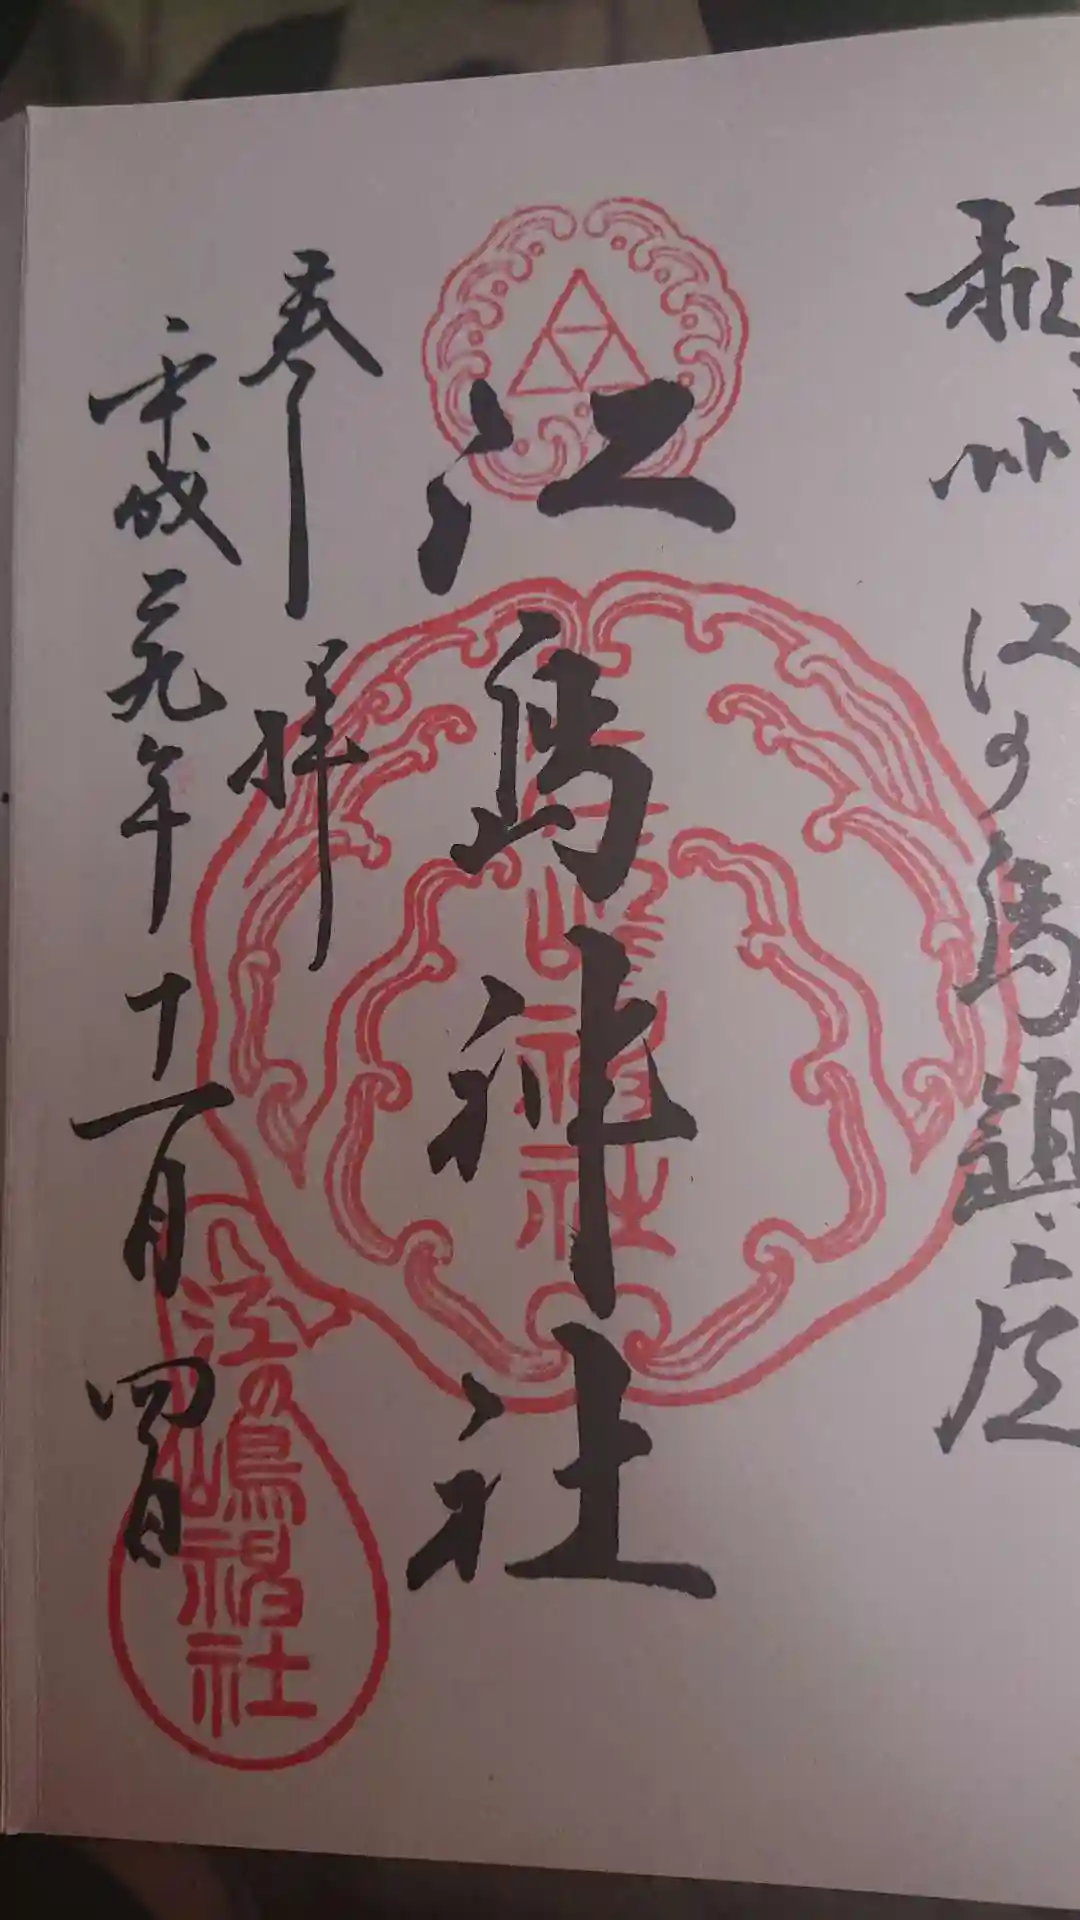 相州 江の島鎮座
江島神社
嶋神社
奉拝
平成二九年十一月四日
江の嶋神社